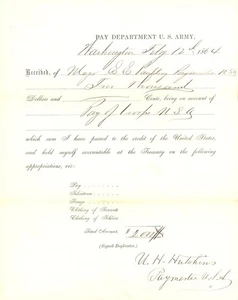 PAY DEPARTMENT U. S. ARMY,
Washington Feby 12th 1864
Received, of Major S. E. Paymaster U.S.A.
Two Thousand
Dollars and Cents, being on account of
Pay of Troops U.S.A.
which sum I have passed to the credit of the United States,
and hold myself accountable at the Treasury on the following
appropriations, viz:
Pay
Subsistence
Forage
Clothing of Servants
Clothing of Soldiers
Total Amount, $2000
(Signed Duplicates.)
U. H. Hutchins
Paymaster U.S.A.